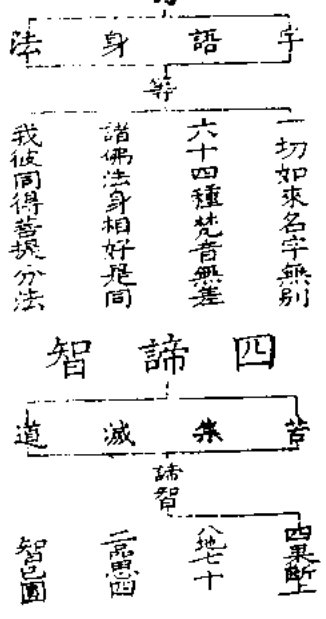 字語身法
等
一切如來名字無別
六十四種梵音無差
諸佛法身相好是同
我彼同得菩提分法
四諦智
苦集滅道
諦智
四果斷上
八地七十
二品思四
智已圓